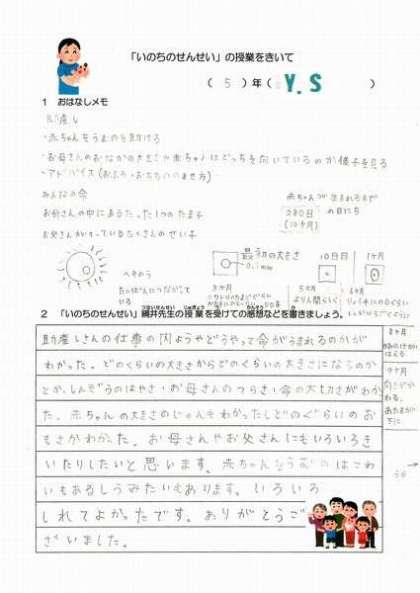 「いのちのせんせい」の授業をきいて
( 5 )年( Y.S )
1 おはなしメモ
助産し
・赤ちゃんをうむのを助ける
・お母さんのおなかの大きさや赤ちゃんはどっちを向いているのか様子を見る
・アドバイス(おふろ・おちちののませ方)
みんなの命
お母さんの中にあるたった1つのたまご
お父さんがもっているたくさんのせい子
赤ちゃんが生まれるまで
280日の日にち
(10ヶ月)
へそのう
最初の大きさ
0.1mm
10日目
1ヶ月
3ヶ月
5ヶ月
2 「いのちのせんせい」綱井先生の授業を受けての感想などを書きましょう。
助産しさんの仕事の内ようやどうやって命がうまれるのかが
わかった。どのくらいの大きさからどのくらいの大きさになるのか
とか、しんぞうのはやさ・お母さんのつらさ・命の大切さがわかっ
た。赤ちゃんの大きさのじゅんもわかったしどのぐらいのお
もさかわかった。お母さんやお父さんにもいろいろき
いたりしたいと思います。赤ちゃんをうむのはこわ
いもあるしうみたいもあります。いろいろ
しれてよかったです。ありがとうご
ざいました。
8ヶ月
9ヶ月
向きがかわる。
あたまが下に